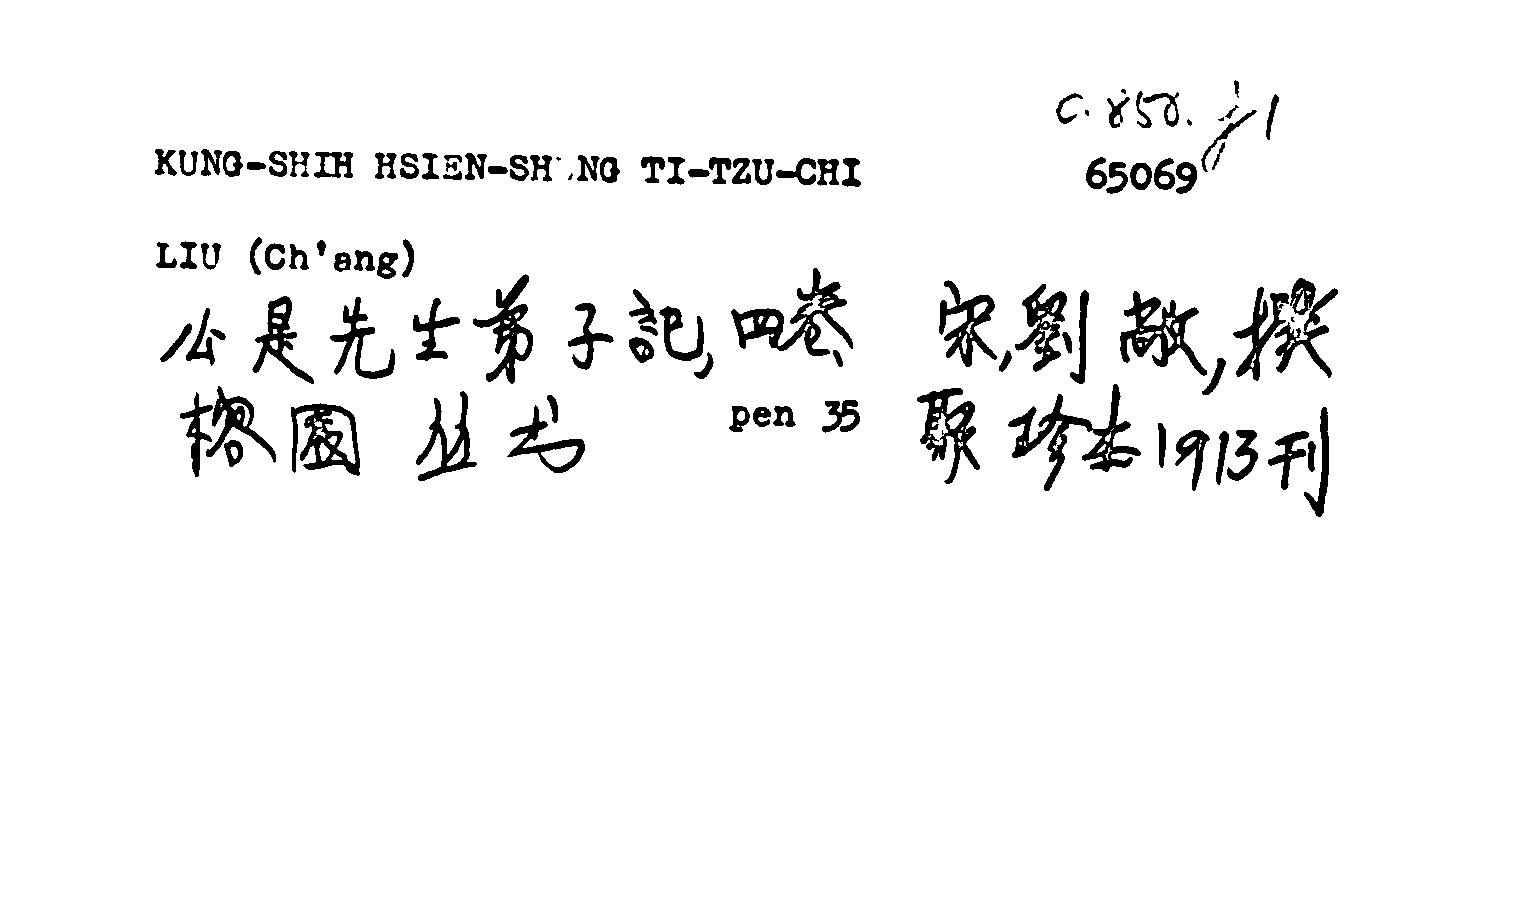 C. 850. j 1
KUNG-SHIH HSIEN-SHENG TI-TZU-CHI 65069
LIU (Ch'ang)
公是先生弟子記, 四卷、 宋,劉敞,撰
榕園丛书 pen 35 聚珍本1913刊